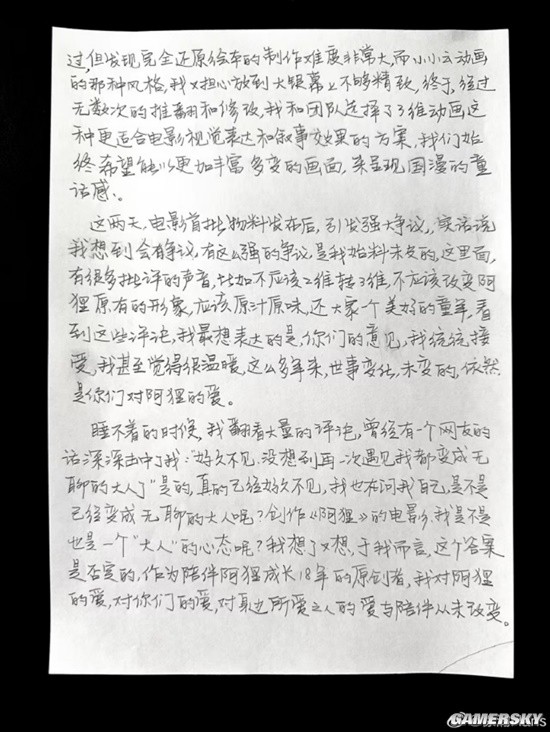 过,但发现完全还原绘本的制作难度非常大,而小小云动画
的那种风格,我又担心放到大银幕上不够精致,终于,经过
无数次的推翻和修改,我和团队选择了3维动画这
种更适合电影视觉表达和叙事效果的方案,我们始
终希望能以更加丰富多变的画面,来呈现国漫的童
话感、。
这两天,电影首批物料发布后,引发强大争议,,实话说
我想到会有争议,有这么强的争议是我始料未及的,这里面,
有很多批评的声音,比如不应该2维转3维,不应该改变阿
狸原有的形象,应该原汁原味,还大家一个美好的童年,看
到这些评论,我最想表达的是,你们的意见,我统统接
受,我甚至觉得很温暖,这么多年来,世事变化,未变的,依然
是你们对阿狸的爱。
睡不着的时候,我翻看大量的评论,曾经有一个网友的
话深深击中了我:"好久不见,没想到再一次遇见我都变成无
聊的大人了"是的,真的已经好久不见,我也在问我自己,是不是
已经变成无聊的大人呢?创作《阿狸》的电影,我是不是
也是一个"大人"的心态呢?我想了又想,于我而言,这个答案
是否定的,作为陪伴阿狸成长18年的原创者,我对阿狸
的爱,对你们的爱,对身边所爱之人的爱与陪伴从未改变。
GAMERSKY